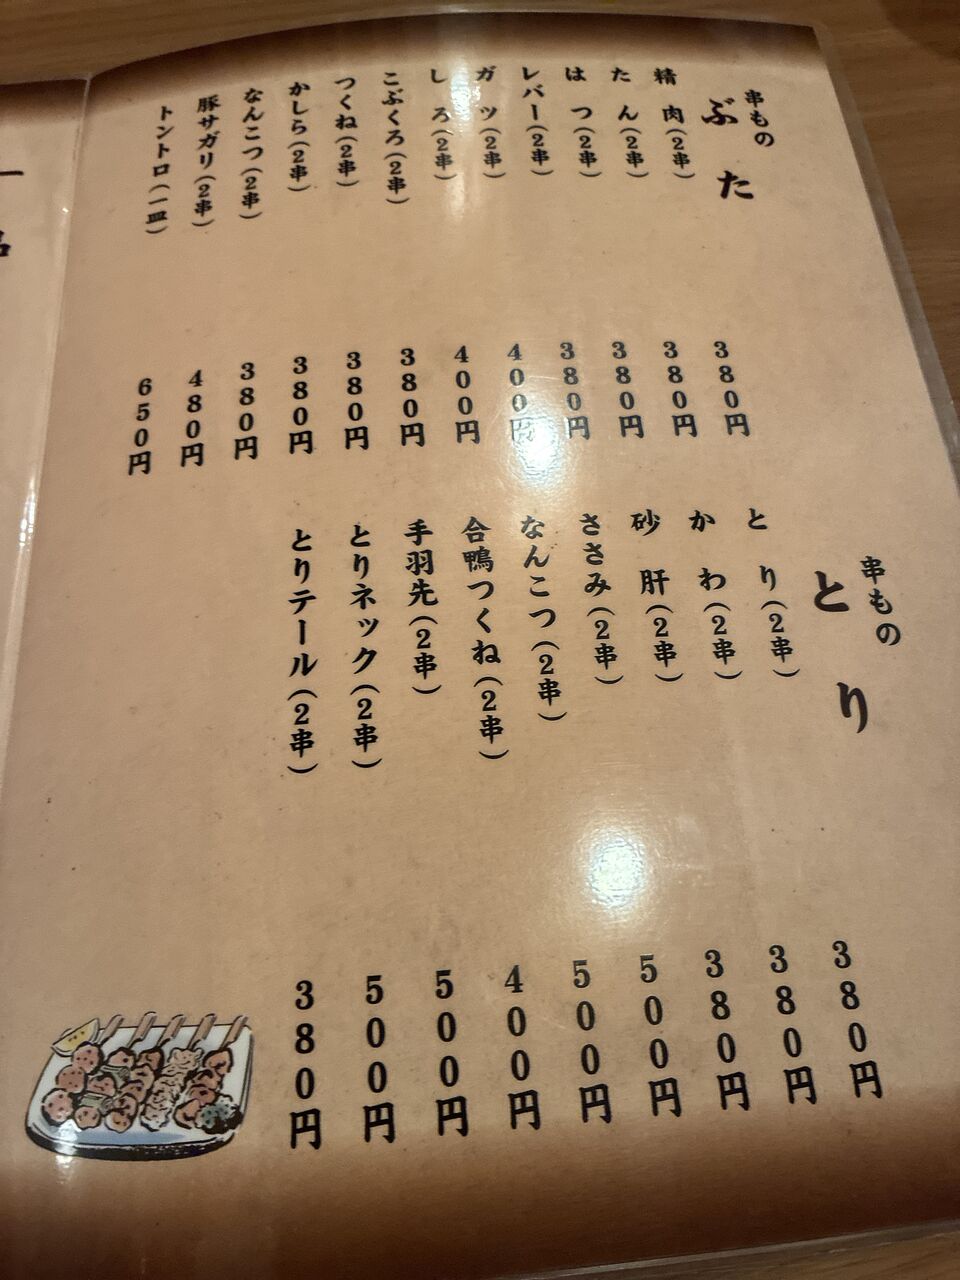 串もの
ぶた
精肉(2串) 380円
たん(2串) 380円
はつ(2串) 380円
レバー(2串) 380円
ガツ(2串) 400円
しろ(2串) 400円
こぶくろ(2串) 380円
つくね(2串) 380円
かしら(2串) 380円
なんこつ(2串) 380円
豚サガリ(2串) 480円
トントロ(一皿) 650円
串もの
とり
とり(2串) 380円
かわ(2串) 380円
砂肝(2串) 380円
ささみ(2串) 500円
なんこつ(2串) 500円
合鴨つくね(2串) 400円
手羽先(2串) 500円
とりネック(2串) 500円
とりテール(2串) 380円